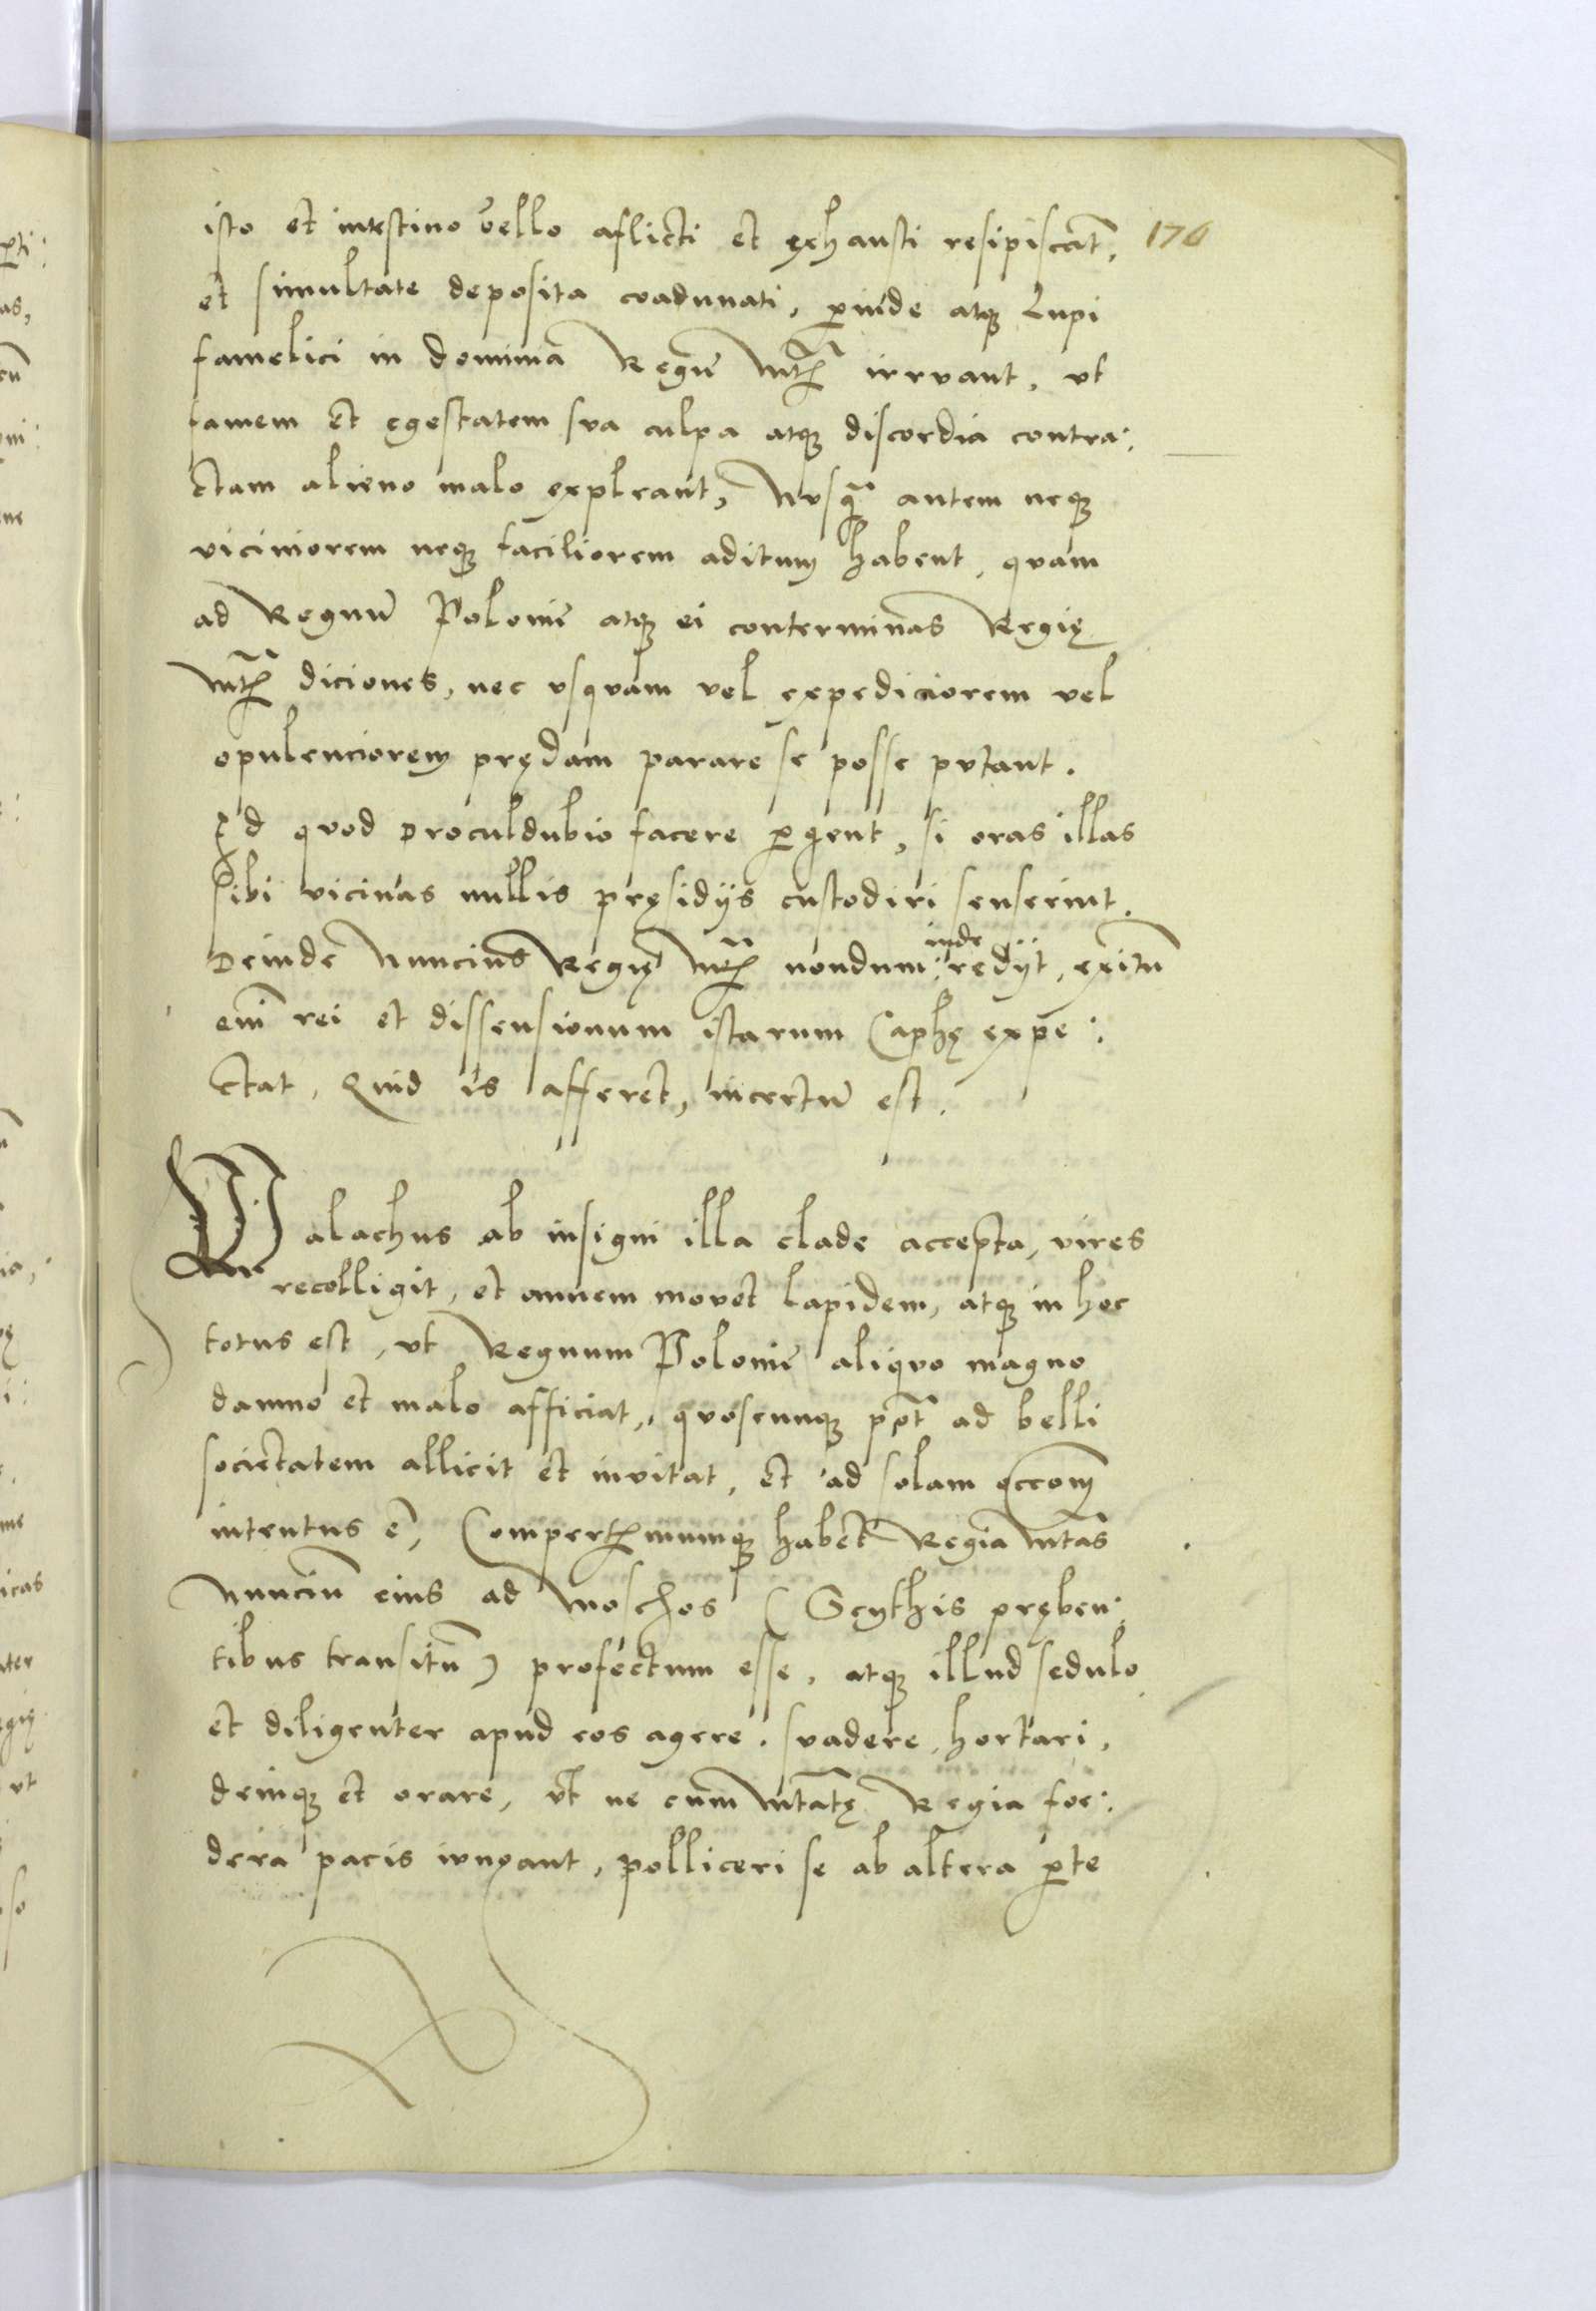 isto et intestino bello aflicti et exhausti resipiscāt, 176
et simultate deposita coadunati, ꝑinde atqꝫ Lupi
famelici in dominia Regie Mtis irruant, vt
famem et egestatem sua culpa atqꝫ discordia contra:
ctam alieno malo expleant, Nusqᵃ autem neqꝫ
viciniorem neqꝫ faciliorem aditum habent, quam
ad Regnū Polonie atqꝫ ei conterminas Regię
Mtis diciones, nec vsquam vel expediciorem vel
opulenciorem prędam parare se posse putant.
Id quod proculdubio facere ꝑgent, si oras illas
sibi vicinas nullis pręsidijs custodiri senserint.
Deinde Nuncius Regię Mtis nondum inde redijt, exitū
em̄ rei et dissensionum istarum Caphę expe:
ctat, Quid is afferet, incertū est.
Walachus ab insigni illa clade accepta, vires
recolligit, et omnem movet lapidem, atqꝫ in hoc
totus est, vt Regnum Polonie aliquo magno
damno et malo afficiat, quoscunqꝫ pōt ad belli
societatem allicit et invitat, et ad solam occōm
intentus ē, Compertissimumqꝫ habet Regia Mtas
Nunciū eius ad Moschos (Scythis pręben:
tibus transitū) profectum esse, atqꝫ illud sedulo
et diligenter apud eos agere. suadere, hortari,
deinqꝫ et orare, vt ne cum Mtātę Regia foe:
dera pacis iungant, polliceri se ab altera ꝑte